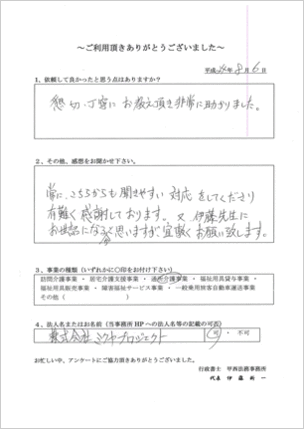 ～ご利用頂きありがとうございました～
平成24年8月6日
1、依頼して良かったと思う点はありますか？
懇切、丁寧に お教え頂き非常に助かりました。
2、その他、感想をお聞かせ下さい。
常に、こちらからも聞きやすい 対応 をしてくださり
有難く感謝しております。又 伊藤先生に
お世話になると思いますが宜敷くお願い致します。
3、事業の種類（いずれかに〇印をお付け下さい）
訪問介護事業 ・ 居宅介護支援事業 ・ 通所介護事業 ・ 福祉用具貸与事業 ・
福祉用具販売事業 ・ 障害福祉サービス事業 ・ 一般乗用旅客自動車運送事業
その他（ ）
4、法人名またはお名前（当事務所HPへの法人名等の記載の可否）
株式会社 ミツヤプロジェクト 可 ・ 不可
お忙しい中、アンケートにご協力頂きありがとうございました。
行政書士 甲西法務事務所
代表 伊藤 裕一